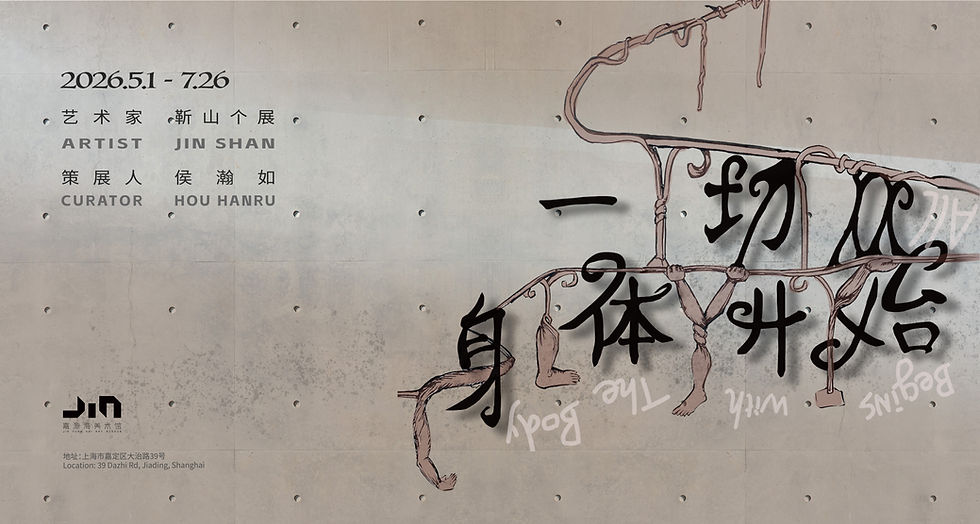 2026.5.1 - 7.26
艺术家 靳山个展
ARTIST JIN SHAN
策展人 侯瀚如
CURATOR HOU HANRU
一切从
身体开始
All
Begins
with
The Body
JiN
地址：上海市嘉定区大治路39号
Location: 39 Dazhi Rd, Jiading, Shanghai